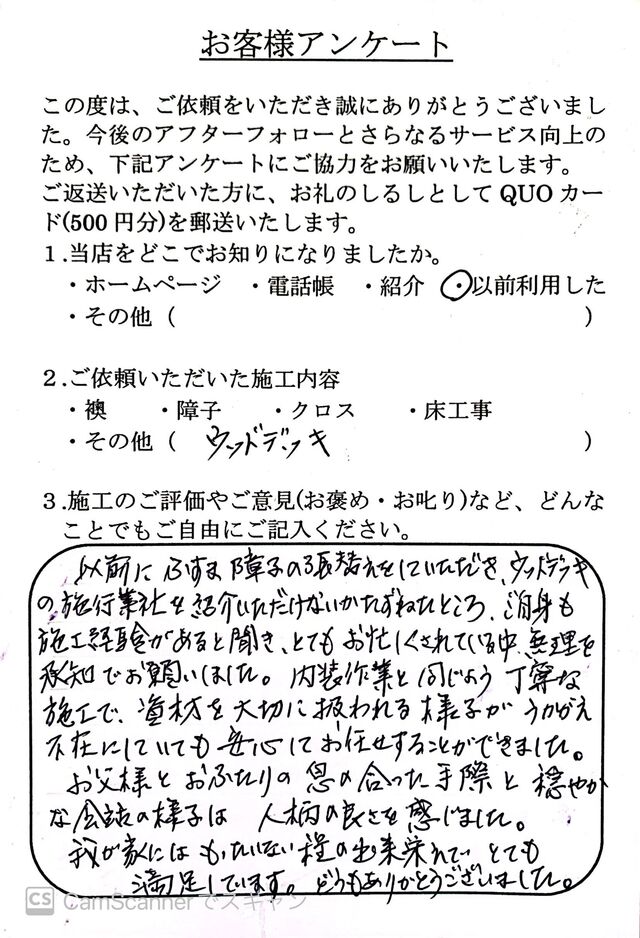 お客様アンケート
この度は、ご依頼をいただき誠にありがとうございまし
た。今後のアフターフォローとさらなるサービス向上の
ため、下記アンケートにご協力をお願いいたします。
ご返送いただいた方に、お礼のしるしとしてQUOカー
ド(500円分)を郵送いたします。
１.当店をどこでお知りになりましたか。
・ホームページ ・電話帳 ・紹介 ・以前利用した
・その他（ ）
２.ご依頼いただいた施工内容
・襖 ・障子 ・クロス ・床工事
・その他（ ウッドデッキ ）
３.施工のご評価やご意見(お褒め・お叱り)など、どんな
ことでもご自由にご記入ください。
以前にふすま障子の張替えをしていただき、ウッドデッキ
の施行業社を紹介いただけないかたずねたところ、ご自身も
施工経験があると聞き、とてもお忙しくされている中、無理を
承知でお願いしました。内装作業と同じよう丁寧な
施工で、資材を大切に扱われる様子がうかがえ
不在にしていても安心してお任せすることができました。
お父様とおふたりの息の合った手際と穏やか
な会話の様子は 人柄の良さを感じました。
我が家にはもったいない程の出来栄えで とても
満足しています。どうもありがとうございました。
CS CamScannerでスキャン